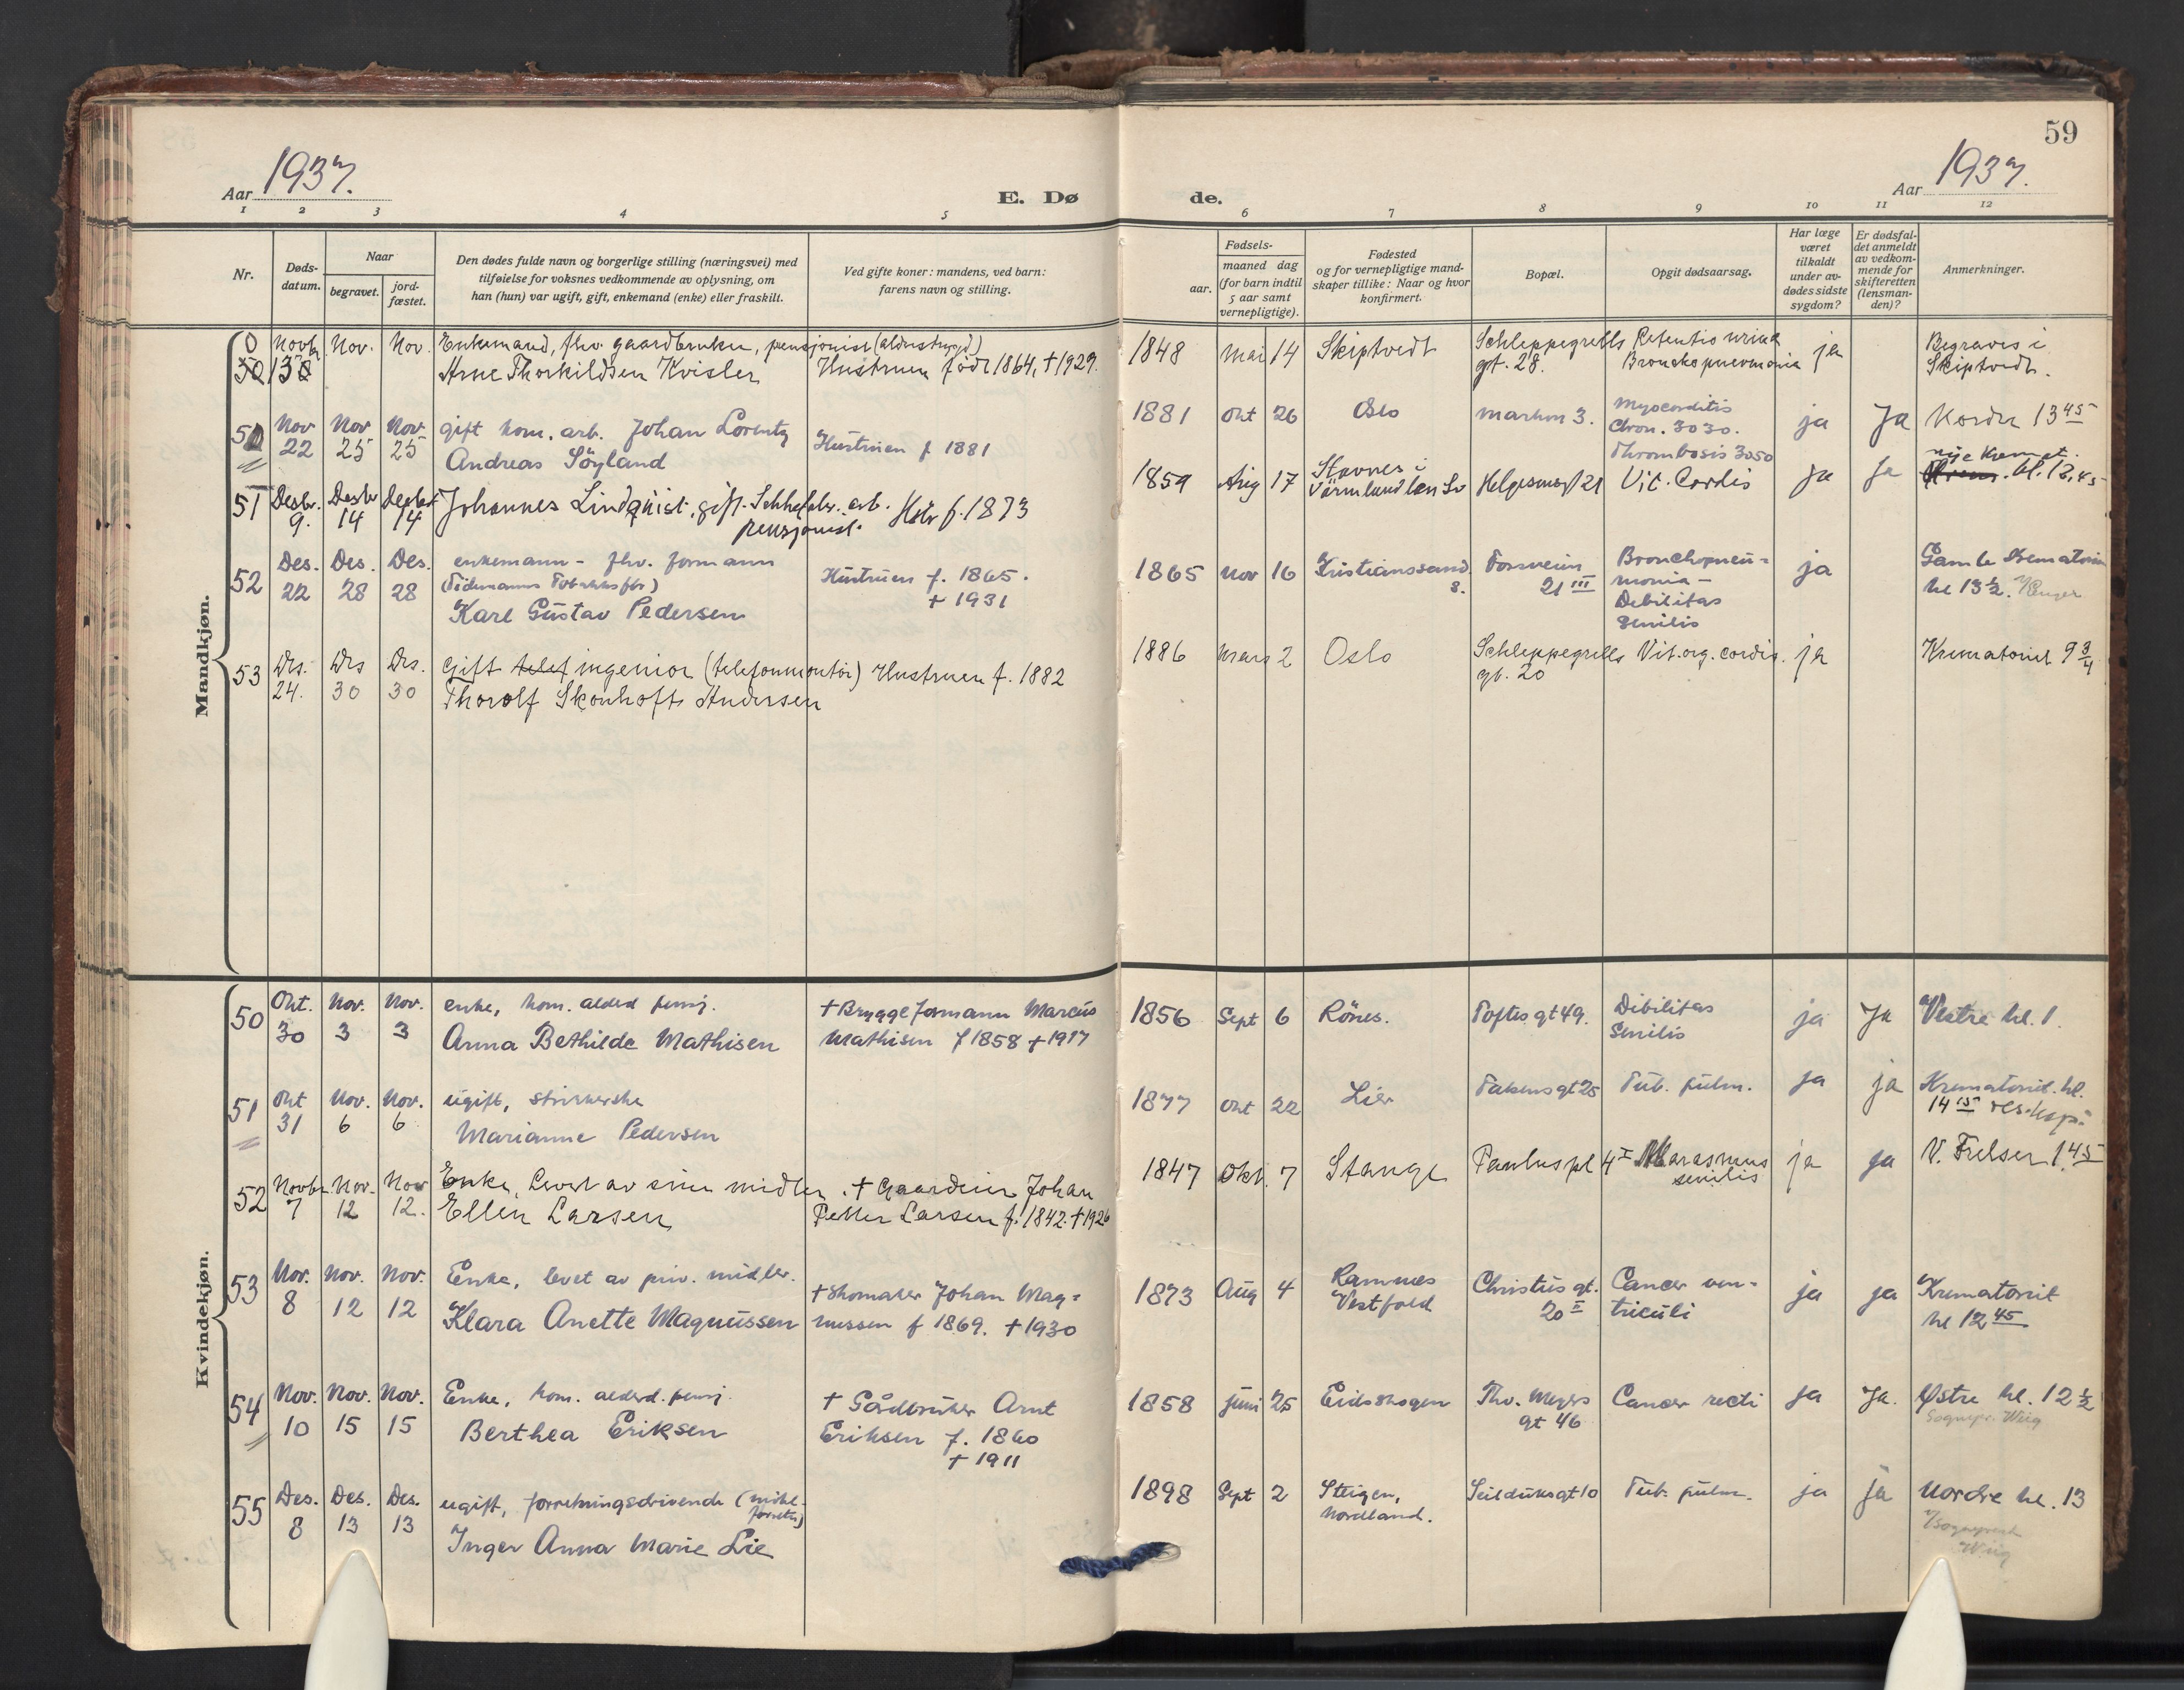 59
Aar 1937.
E. Dø de.
Aar 1937.
1 2 3 4 5 6 7 8 9 10 11 12
Nr.
Døds-
datum.
Naar
begravet.
jord-
fæstet.
Den dødes fulde navn og borgerlige stilling (næringsvei) med
tilføielse for voksnes vedkommende av oplysning, om
han (hun) var ugift, gift, enkemand (enke) eller fraskilt.
Ved gifte koner: mandens, ved barn:
farens navn og stilling.
Fødsels-
aar.
maaned dag
(for barn indtil
5 aar samt
vernepligtige).
Fødested
og for vernepligtige mand-
skaper tillike: Naar og hvor
konfirmert.
Bopæl.
Opgit dødsaarsag.
Har læge
været
tilkaldt
under av-
dødes sidste
sygdom?
Er dødsfal-
det anmeldt
av vedkom-
mende for
skifteretten
(lensman-
den)?
Anmerkninger.
Mandkjøn.
Novbr. Nov. Nov. Enkemand, fhv. gaardbruker, pensjonist (alderstrygd)
Arne Thorkildsen Kvisler Hustruen född 1864, † 1929.
1848 mai 14 Skiptvedt Schleppegrells gt. 28. Retentio urinae
Bronchopneumonia ja Begraves i
Skiptvedt.
Nov Nov Nov gift kom. arb. Johan Lorentz
22 25 25 Andreas Söyland Hustruen f 1881
1881 Okt 26 Oslo Markvn 3. Myocarditis
Chron. 3030.
Thrombosis 3050 ja Ja Nordre 13 45
51 Desbr. Desbr Desbr Johannes Lindqvist, gift. arb. Hstr f. 1873
9. 14 14 pensjonist.
1859 Aug 17 Stavnes i
Värmland län Sv Helgesensgt 21 Vit. Cordis ja ja nye Kremat.
kl. 12.45
52 Des. Des. Des. enkemann - fhv. formann
22 28 28 (Tidemanns Tobakksfbr)
Karl Gustav Pedersen Hustruen f. 1865.
† 1931
1865 Nov 16 Kristianssand
S. Fossveien
21 III Bronchopneu-
monia -
Debilitas
senilis ja Gamle Krematorium
kl 13 ½.
53 Des. Des Des. Gift telef ingeniør (telefonmontör) Hustruen f. 1882
24. 30 30 Thorolf Skonhoft Andersen
1886 mars 2 Oslo Schleppegrells
gt. 20 Vit. org. cordis. ja Krematoriet 9 ¾
Kvindekjøn.
50 Okt. Nov. Nov. enke, kom. alderd pensj.
30 3 3 Anna Bethilde Mathisen
† Bryggeformann Marcus
Mathisen f 1858 † 1917
1856 Sept 6 Rönes. Toftes gt 49. Debilitas
Senilis ja Ja Vestre kl. 1.
51 Okt Nov. Nov. ugift, strikkerske
31 6 6 Marianne Pedersen
1877 Okt 22 Lier Falsens gt 25 Tub. pulm. ja ja Krematoriet kl.
14 15
52 Novbr. Nov. Nov Enke, Levet av sine midler.
7 12 12. Ellen Larsen
† Gaardeier Johan
Petter Larsen f. 1842. † 1926
1847 Okt. 7 Stange Pauluspl 4 I Marasmus
senilis ja ja V. Frelser 1.45
53 Nov. Nov. Nov. Enke, levet av priv. midler.
8 12 12 Klara Anette Magnussen
† Skomaker Johan Mag-
nussen f 1869. † 1930
1873 Aug 4 Ramnes
Vestfold Christies gt.
20 II Cancer ven-
triculi ja ja Krematoriet
kl 12 45
54 Nov. Nov. Nov. Enke, kom. alderd. pensj.
10 15 15 Berthea Eriksen
† Gårdbruker Arnt
Eriksen f. 1860
† 1911
1858 juni 25 Eidskogen Thv. Meyers
gt 46 Cancer recti ja Ja. Østre kl. 12 ½
Sognepr. Wiig
55 Des. Des. Des. ugift, forretningsdrivende
8 13 13 Inger Anna Marie Lie
1898 Sept 2 Steigen,
Nordland. Seilduksgt 10 Tub. pulm. ja ja Nordre kl. 13
Sogneprest
Wiig